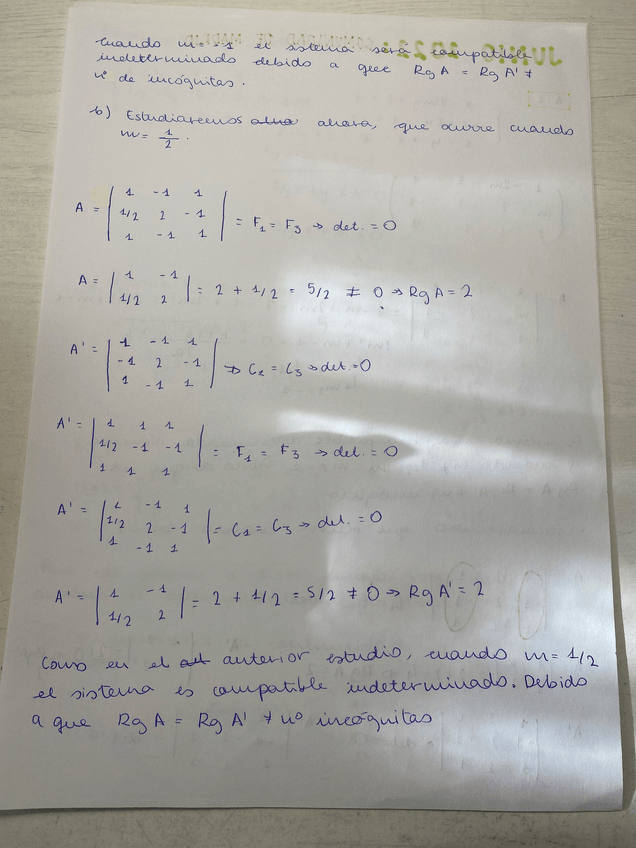 cuando m=-1 el sistema será compatible
indeterminado debido a que Rg A = Rg A' ≠
nº de incógnitas.
b) Estudiaremos ahora, que ocurre cuando
m= 1/2.
A = | 1 -1 1 |
| 1/2 2 -1 | = F1 = F3 → det. = 0
| 1 -1 1 |
A = | 1 -1 |
| 1/2 2 | = 2 + 1/2 = 5/2 ≠ 0 → Rg A = 2
A' = | 1 -1 1 |
| -1 2 -1 | → C1 = C3 → det. = 0
| 1 -1 1 |
A' = | 1 1 1 |
| 1/2 -1 -1 | = F1 = F3 → det. = 0
| 1 1 1 |
A' = | 1 -1 1 |
| 1/2 2 -1 | = C1 = C3 → det. = 0
| 1 -1 1 |
A' = | 1 -1 |
| 1/2 2 | = 2 + 1/2 = 5/2 ≠ 0 → Rg A' = 2
Como en el anterior estudio, cuando m= 1/2
el sistema es compatible indeterminado. Debido
a que Rg A = Rg A' ≠ nº incógnitas